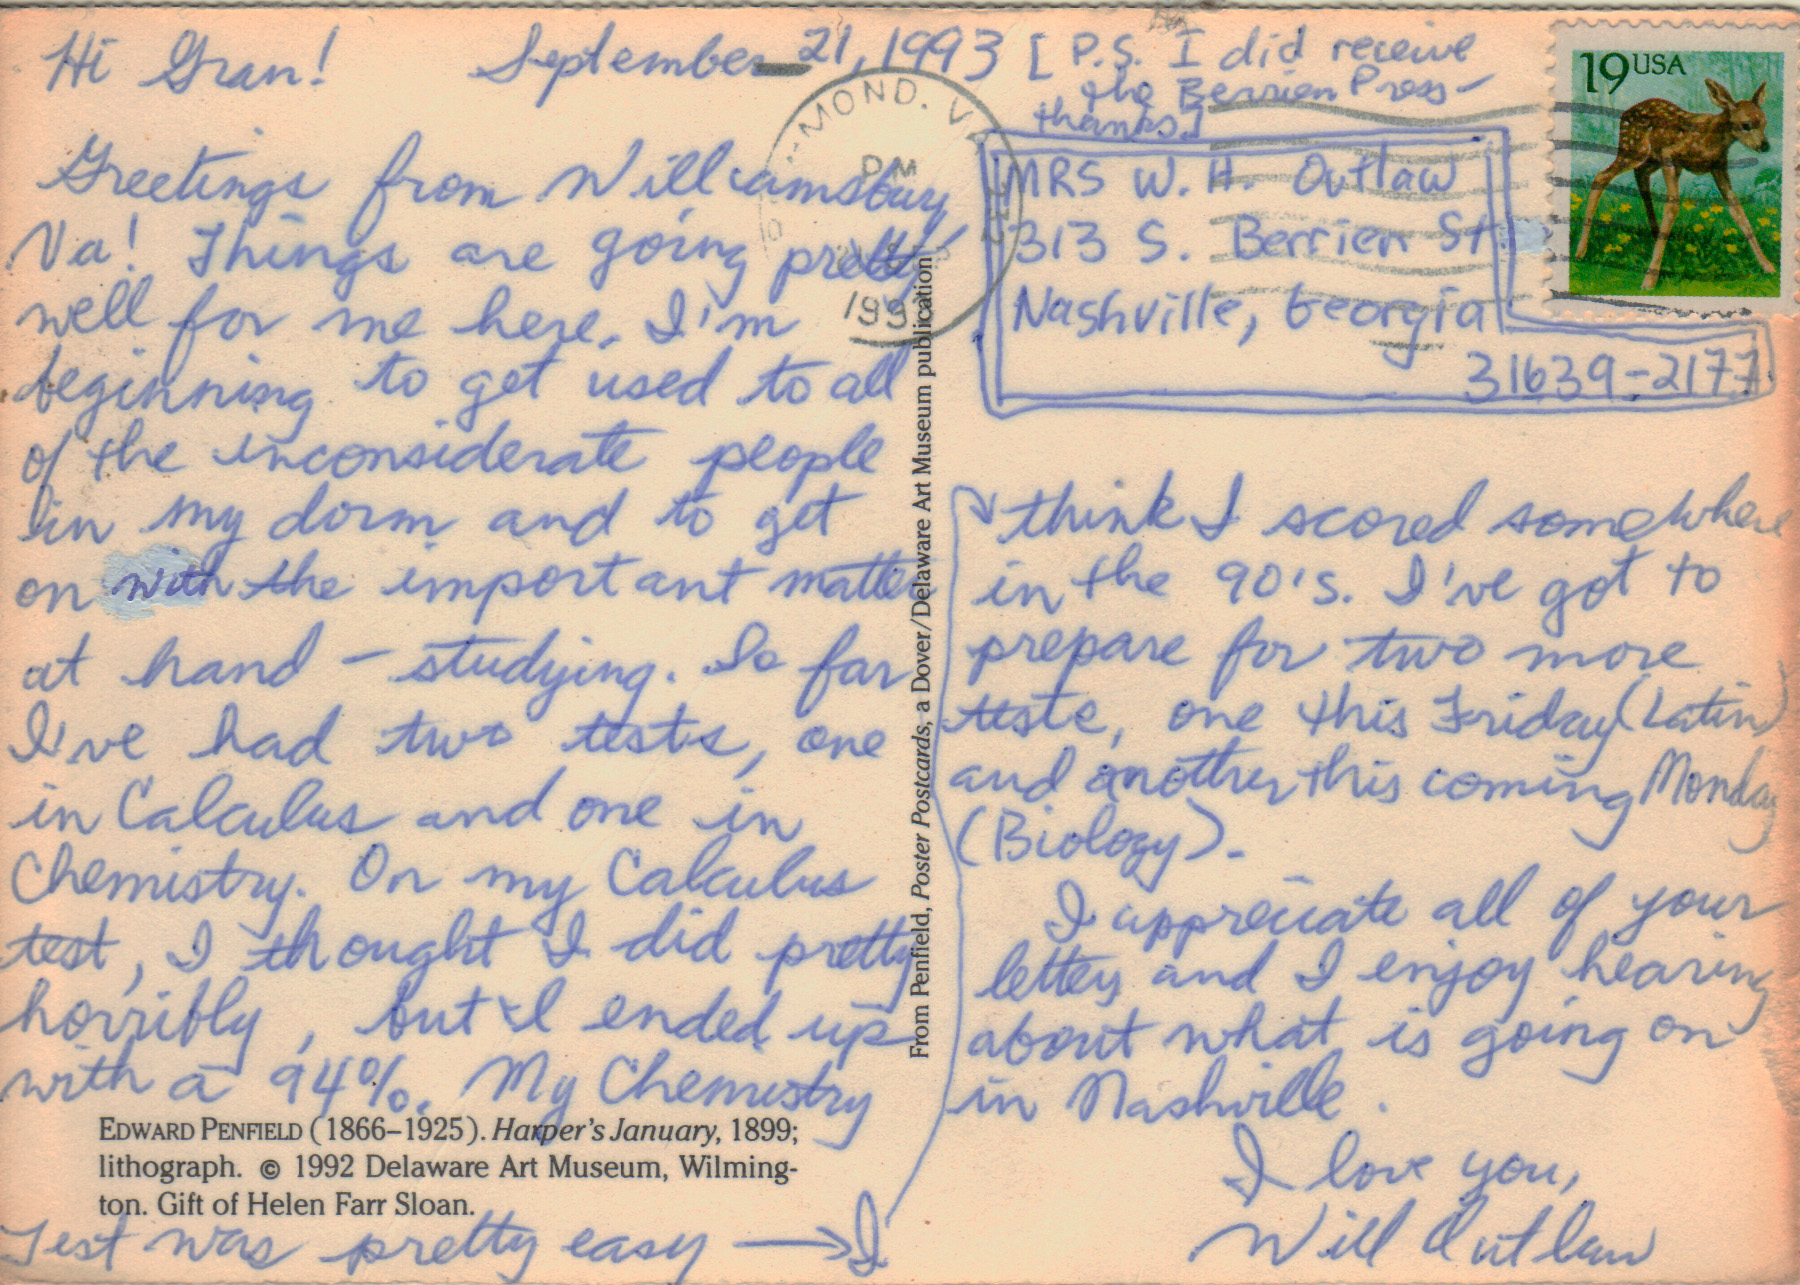 Hi Gran! September 21, 1993 [P.S. I did receive
the Berrien Press -
thanks.]
Greetings from Williamsburg,
Va! Things are going pretty
well for me here. I'm
beginning to get used to all
of the inconsiderate people
in my dorm and to get
on with the important matter
at hand - studying. So far
I've had two tests, one
in Calculus and one in
Chemistry. On my Calculus
test, I thought I did pretty
horribly, but I ended up
with a 94%. My Chemistry
Test was pretty easy → I
think I scored somewhere
in the 90's. I've got to
prepare for two more
tests, one this Friday (Latin)
and another this coming Monday
(Biology).
I appreciate all of your
letters and I enjoy hearing
about what is going on
in Nashville.
I love you,
Will Outlaw
MRS W. H. Outlaw
313 S. Berrien St.
Nashville, Georgia
31639-2177
19 USA
MOND, VA
PM
199
From Penfield, Poster Postcards, a Dover/Delaware Art Museum publication
EDWARD PENFIELD (1866–1925). Harper's January, 1899;
lithograph. © 1992 Delaware Art Museum, Wilming-
ton. Gift of Helen Farr Sloan.